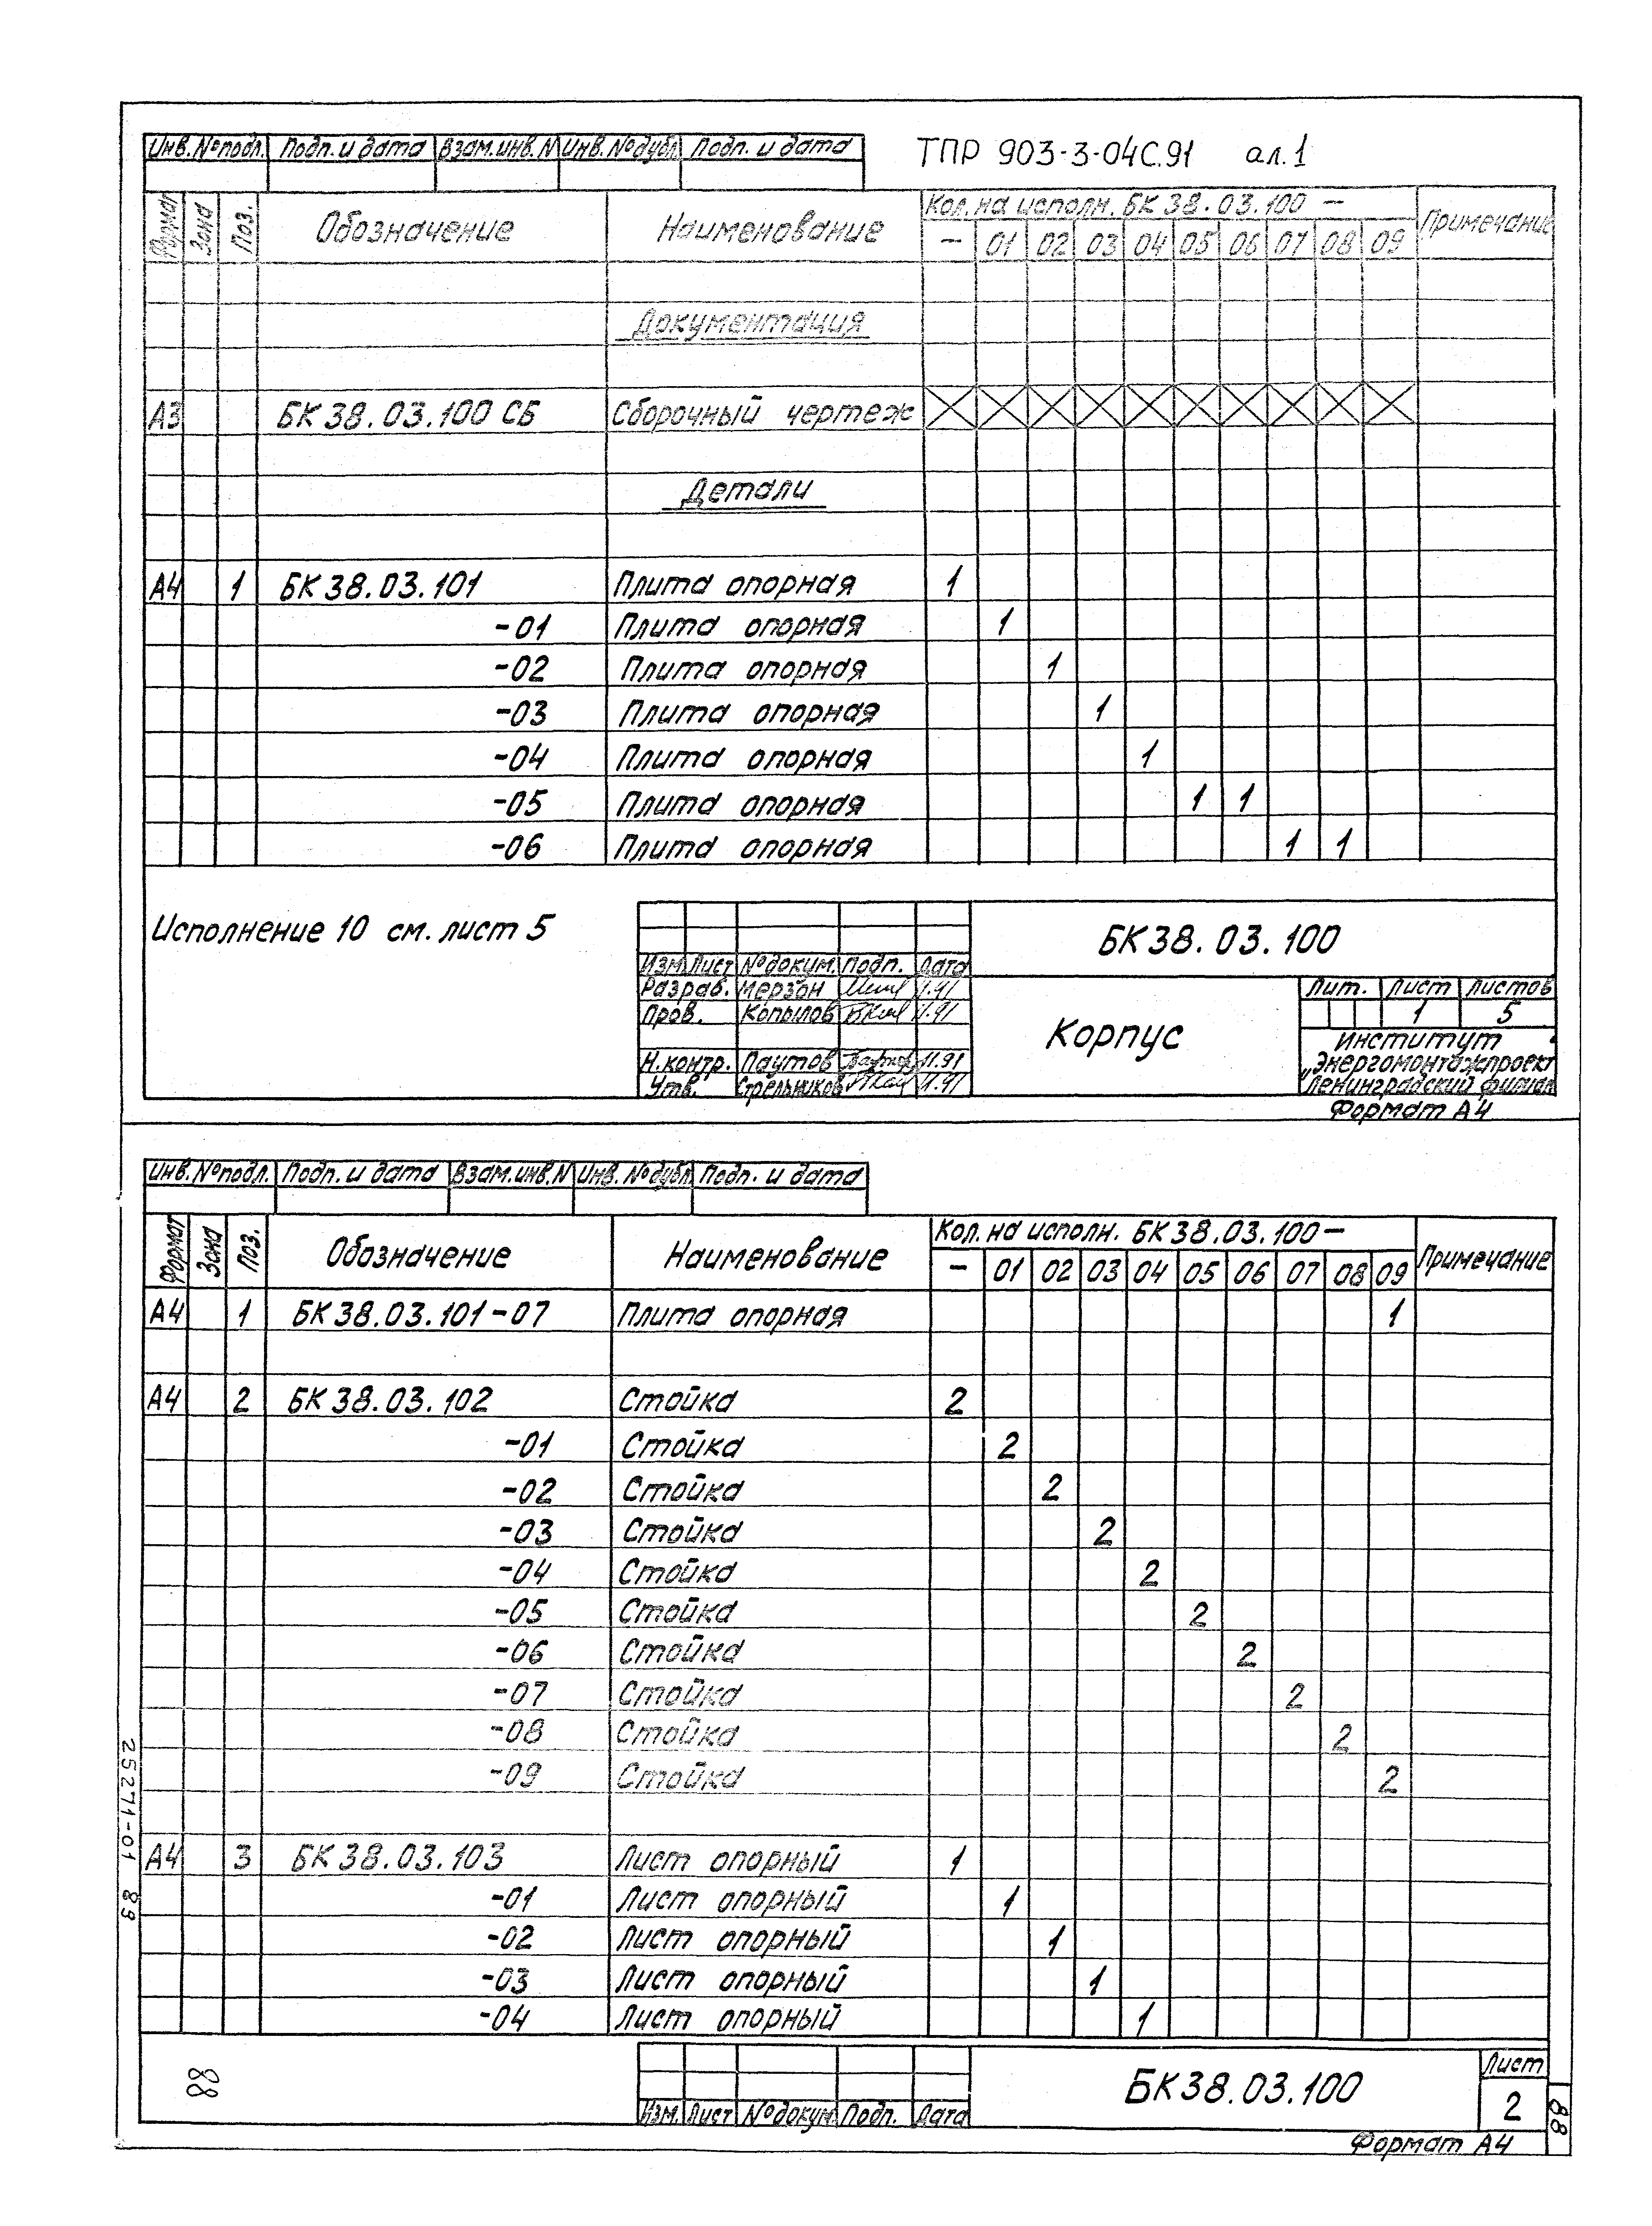 ТПР 903-3-04С.91 ал.1
Инв.№подл. Подп. и дата Взам.инв.№ Инв.№дубл. Подп. и дата
Формат Зона Поз. Обозначение Наименование Кол. на исполн. БК 38.03.100 — Примечание
— 01 02 03 04 05 06 07 08 09
Документация
А3 БК 38.03.100 СБ Сборочный чертеж
Детали
А4 1 БК 38.03.101 Плита опорная 1
-01 Плита опорная 1
-02 Плита опорная 1
-03 Плита опорная 1
-04 Плита опорная 1
-05 Плита опорная 1 1
-06 Плита опорная 1 1
Исполнение 10 см. лист 5
БК 38.03.100
Изм. Лист № докум. Подп. Дата
Разраб. Мерзон 11.91
Пров. Копылов 11.91
Н.контр. Паутов 11.91
Утв. Стрельников 11.91
Корпус
Лит. Лист Листов
1 5
Институт
„Энергомонтажпроект
Ленинградский филиал
Формат А4
Инв.№подл. Подп. и дата Взам.инв.№ Инв.№дубл. Подп. и дата
Формат Зона Поз. Обозначение Наименование Кол. на исполн. БК 38.03.100 — Примечание
— 01 02 03 04 05 06 07 08 09
А4 1 БК 38.03.101-07 Плита опорная 1
А4 2 БК 38.03.102 Стойка 2
-01 Стойка 2
-02 Стойка 2
-03 Стойка 2
-04 Стойка 2
-05 Стойка 2
-06 Стойка 2
-07 Стойка 2
-08 Стойка 2
-09 Стойка 2
А4 3 БК 38.03.103 Лист опорный 1
-01 Лист опорный 1
-02 Лист опорный 1
-03 Лист опорный 1
-04 Лист опорный 1
25271-01 89
88
Изм. Лист № докум. Подп. Дата
БК 38.03.100
Лист
2
88
Формат А4